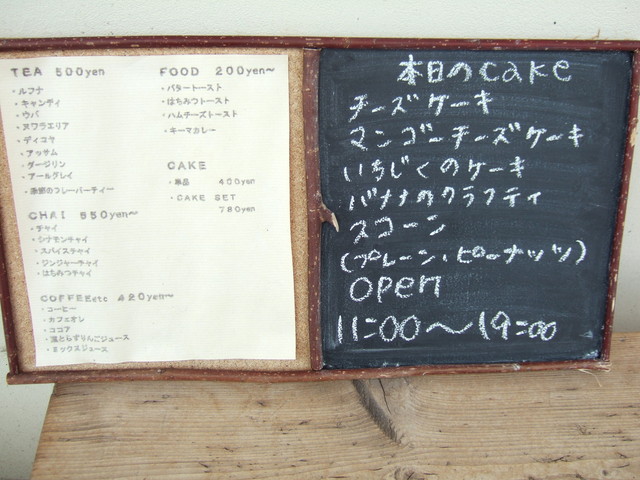 TEA 500yen
・ルフナ
・キャンディ
・ウバ
・ヌワラエリア
・ディコヤ
・アッサム
・ダージリン
・アールグレイ
・季節のフレーバーティー
CHAI 550yen~
・チャイ
・シナモンチャイ
・スパイスチャイ
・ジンジャーチャイ
・はちみつチャイ
COFFEEetc 420yen~
・コーヒー
・カフェオレ
・ココア
・濃とらずりんごジュース
・ミックスジュース
FOOD 200yen~
・バタートースト
・はちみつトースト
・ハムチーズトースト
・キーマカレー
CAKE
・単品 400yen
・CAKE SET
780yen
本日のcake
チーズケーキ
マンゴーチーズケーキ
いちじくのケーキ
バナナのクラフティ
スコーン
(プレーン・ピーナッツ)
open
11:00〜19:00